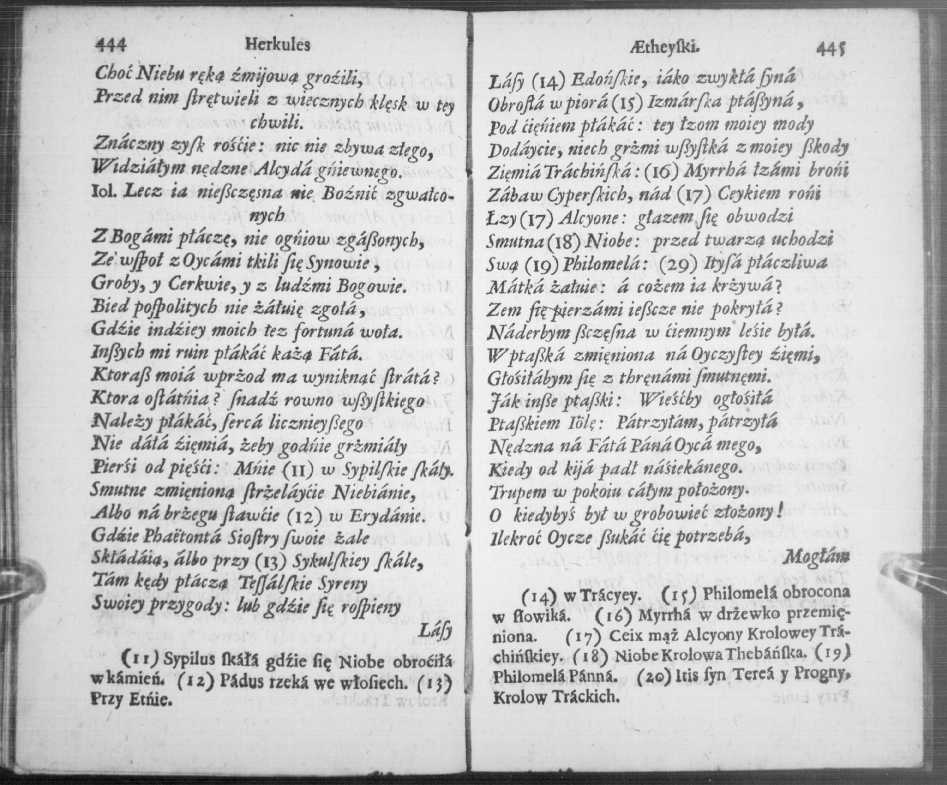 444 Herkules
Choć Niebu ręką źmijową groźili,
Przed nim ſtrętwieli z wiecznych klęsk w tey
chwili.
Znáczny zyſk rośćie: nic nie zbywa złego,
Widziáłym nędzne Alcydá gńiewnego.
Iol. Lecz ia nieſzczęsna nie Boźnić zgwałco-
nych
Z Bogámi płáczę, nie ogńiow zgáſzonych,
Ze wſpoł z Oycámi tkili ſię Synowie,
Groby, y Cerkwie, y z ludźmi Bogowie.
Bied poſpolitych nie żáłuię zgołá,
Gdźie indźiey moich łez fortuná woła.
Inſzych mi ruin płákáć każą Fátá.
Ktoraſz moiá wprżod ma wyniknąć ſtrátá?
Ktora oſtátńia? ſnadź rowno wſzyſtkiego
Należy płákáć, ſercá licznieyſzego
Nie dáłá źięmiá, żeby godńie grżmiáły
Pierśi od pięśći: Mńie (11) w Sypilſkie ſkáły.
Smutne zmięnioną ſtrżeláyćie Niebiánie,
Albo ná brżegu ſtawćie (12) w Erydánie.
Gdźie Phaëtontá Sioſtry ſwoie żale
Skłádáią, álbo przy (13) Sykulſkiey ſkále,
Tám kędy płáczą Teſſálſkie Syreny
Swoiey przygody: lub gdźie ſię roſpieny
Láſy
(11) Sypilus ſkáłá gdźie ſię Niobe obroćiłá
w kámień. (12) Pádus rzeká we włoſiech. (13)
Przy Etńie.
Ætheyſki. 445
Láſy (14) Edońſkie, iáko zwykłá ſyná
Obroſlá w piorá (15) Izmárſka ptáſzyná,
Pod ćięńiem płákáć: tey łzom moiey mody
Dodáycie, niech grżmi wſzyſtká z moiey ſzkody
Zięmiá Tráchińſká: (16) Myrrhá łzámi brońi
Zábaw Cyperſkich, nád (17) Ceykiem rońi
Łzy (17) Alcyone: głazem ſię obwodzi
Smutna (18) Niobe: przed twarzą uchodzi
Swą (19) Philomelá: (29) Ityſá płáczliwa
Mátká żałuie: á cożem ia krżywá?
Zem ſię pierzámi ieſzcze nie pokryłá?
Náderbym ſzczęſna w ćiemnym leśie byłá.
W ptaſzká zmięniona ná Oyczyſtey źięmi,
Głośiłábym ſię z thręnámi ſmutnęmi.
Ják inſze ptaſzki: Wieśćby ogłośiłá
Ptaſzkiem Iölę: Pátrzyłám, pátrzyłá
Nędzna ná Fátá Páná Oycá mego,
Kiedy od kijá padł náśiekánego.
Trupem w pokoiu cáłym położony.
O kiedybyś był w grobowieć złożony!
Ilekroć Oycze ſzukáć ćię potrzebá,
Mogłám
(14) w Trácyey. (15) Philomelá obrocona
w ſłowiká. (16) Myrrhá w drżewko przemię-
niona. (17) Ceix mąż Alcyony Krolowey Trá-
chińſkiey. (18) Niobe Krolowa Thebáńſka. (19)
Philomelá Pánná. (20) Itis ſyn Tereá y Progny,
Krolow Tráckich.